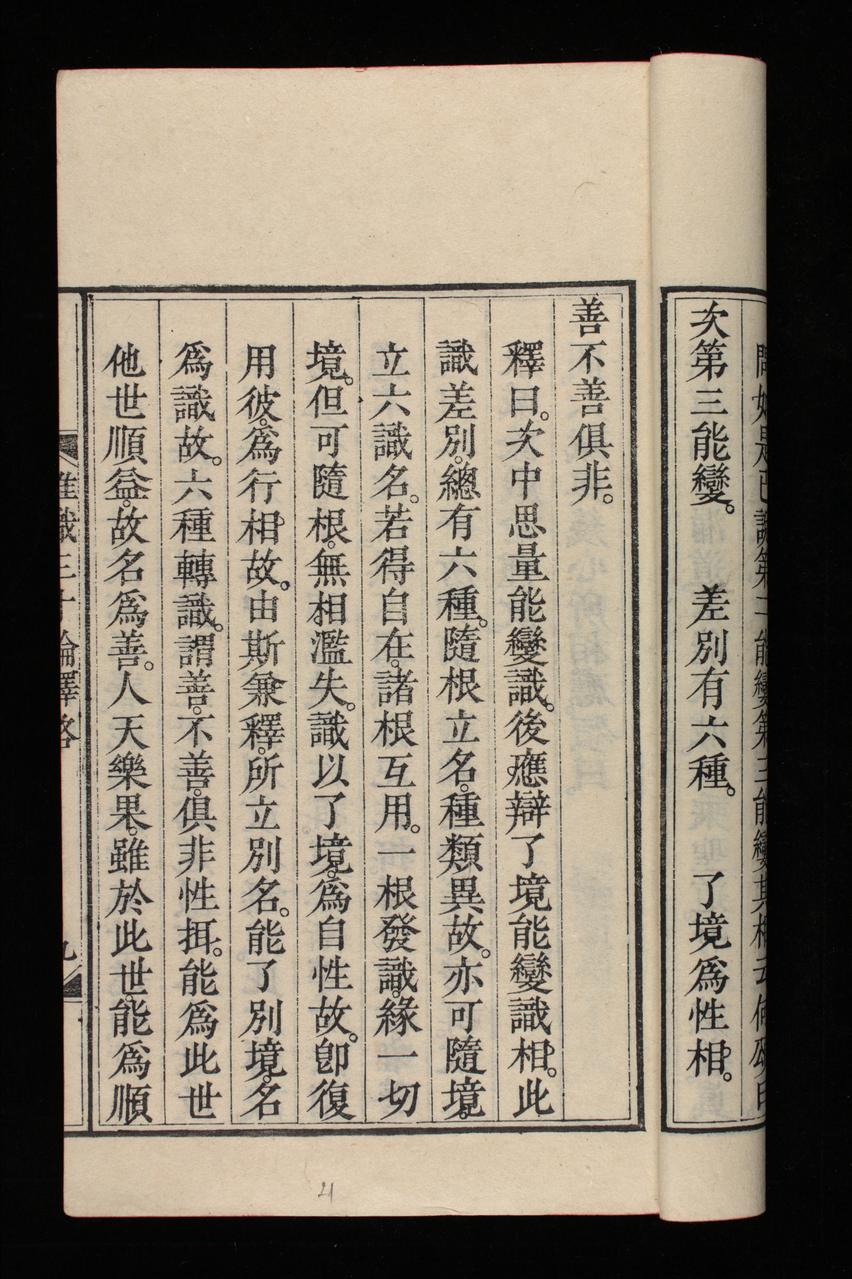 問如是已說第二能變第三能變其相云何頌曰
次第三能變。　差別有六種。　了境爲性相。
善不善俱非。
釋曰。次中思量能變識。後應辯了境能變識相。此
識差別。總有六種。隨根立名。種類異故。亦可隨境。
立六識名。若得自在。諸根互用。一根發識。緣一切
境。但可隨根。無相濫失。識以了境。爲自性故。卽復
用彼。爲行相故。由斯兼釋。所立別名。能了別境。名
爲識故。六種轉識。謂善。不善。俱非性捛。能爲此世
他世順益。故名爲善。人天樂果。雖於此世。能爲順
唯識三十論釋略
九
21